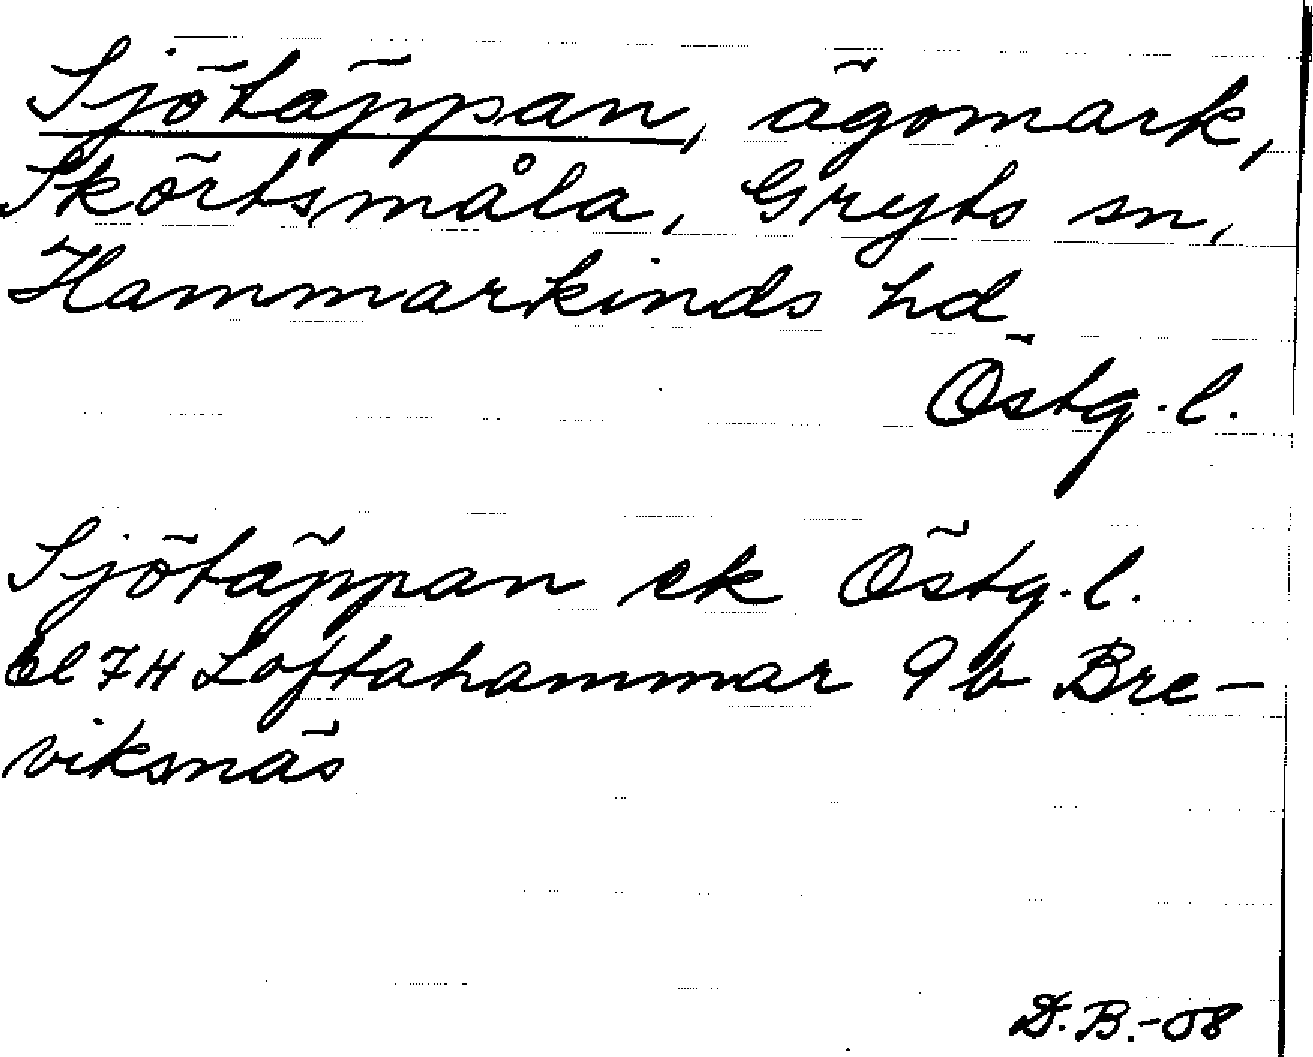 Sjötäppan, ägomark,
Skörtsmåla, Gryts sn,
Hammarkinds hd
Östg.l.
Sjötäppan ek Östg.l.
bl 7H Loftahammar 9b Bre-
viksnäs
D.B.-08